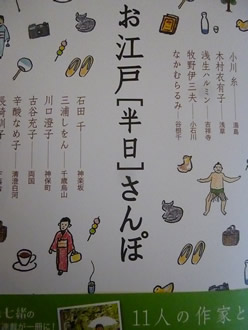 お江戸[半日]さんぽ
小川 糸――湯島
木村衣有子――浅草
浅生ハルミン――吉祥寺
牧野伊三夫――小石川
なかむらるみ――谷根千
石田 千――神楽坂
三浦しをん――千歳烏山
川口澄子――神保町
古谷充子――両国
辛酸なめ子――清澄白河
七緒の
11人の作家と